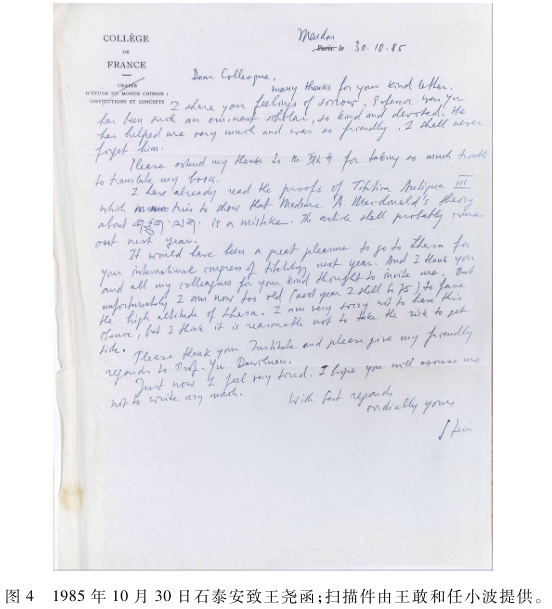 COLLÈGE
DE
FRANCE
CHAIRE
D'ÉTUDE DU MONDE CHINOIS :
INSTITUTIONS ET CONCEPTS
Meudon
Paris, le 30.10.85
Dear Colleague,
many thanks for your kind letter.
I share your feelings of sorrow. Professor Wang Yü
has been such an eminent scholar, so kind and devoted. He
has helped me very much and was so friendly. I shall never
forget him.
Please extend my thanks to Mr. for taking so much trouble
to translate my book.
I have already read the proofs of Tibetica Antiqua III
which tries to show that Madame A. Macdonald's theory
about is a mistake. The article shall probably come
out next year.
It would have been a great pleasure to go to Lhasa for
your international congress of tibetology next year. And I thank you
and all my colleagues for your kind thought to invite me. But
unfortunately I am now too old (next year I shall be 75) to face
the high altitude of Lhasa. I am very sorry not to have this
chance, but I think it is reasonable not to take the risk to get
sick.
Please thank your Institute and please give my friendly
regards to Prof. Yu Daoquan.
Just now I feel very tired. I hope you will excuse me
not to write very much.
With best regards
cordially yours
Stein
图 4 1985 年 10 月 30 日石泰安致王尧函;扫描件由王敢和任小波提供。